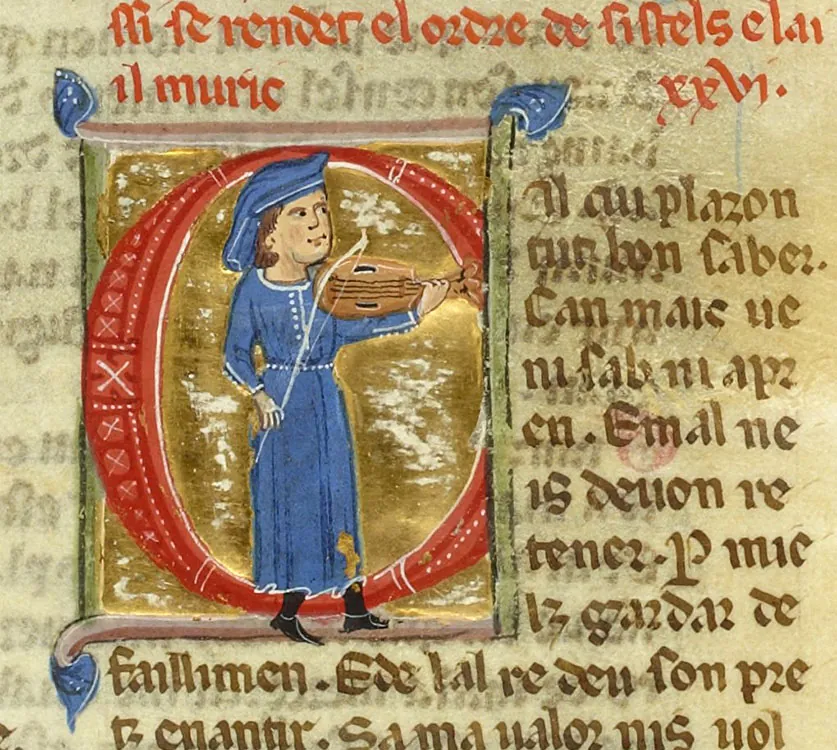 ssi se rendet el ordre de sistels e lai
il muric xxvi.
CAl cui plazon
tuit bon saber.
Can mais ue
ni sab ni apr
en. E mal ne
is deuon re
tener. P mie
lz gardar de
faillimen. E de lal re deu son pre
tz enantir. Sa ma ualor nis uol